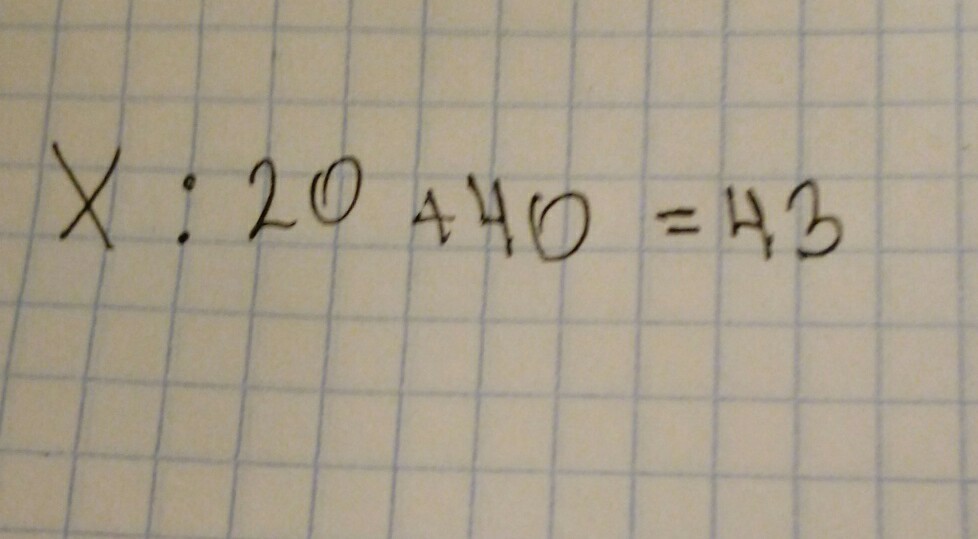 X : 20 + 40 = 43